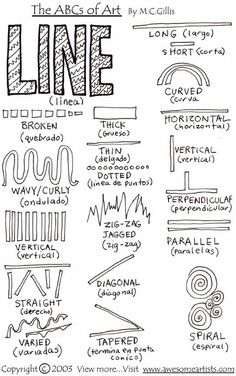 The ABCs of Art By M.C.Gillis
LINE
(línea)
LONG (largo)
SHORT (corta)
CURVED
(curva
BROKEN
(quebrado)
THICK
(Grueso)
HORIZONTAL
(horizontal)
THIN
(delgado)
DOTTED
(línea de puntos)
VERTICAL
(vertical)
WAVY/CURLY
(ondulado)
PERPENDICULAR
(perpendicular)
ZIG-ZAG
JAGGED
(zig-zag)
VERTICAL
(vertical)
PARALLEL
(paralelas)
DIAGONAL
(diagonal)
STRAIGHT
(derecho)
VARIED
(variadas)
TAPERED
(termina en punta
conico)
SPIRAL
(espiral)
Copyright © 2003 View more...Visit www.awesomeartists.com